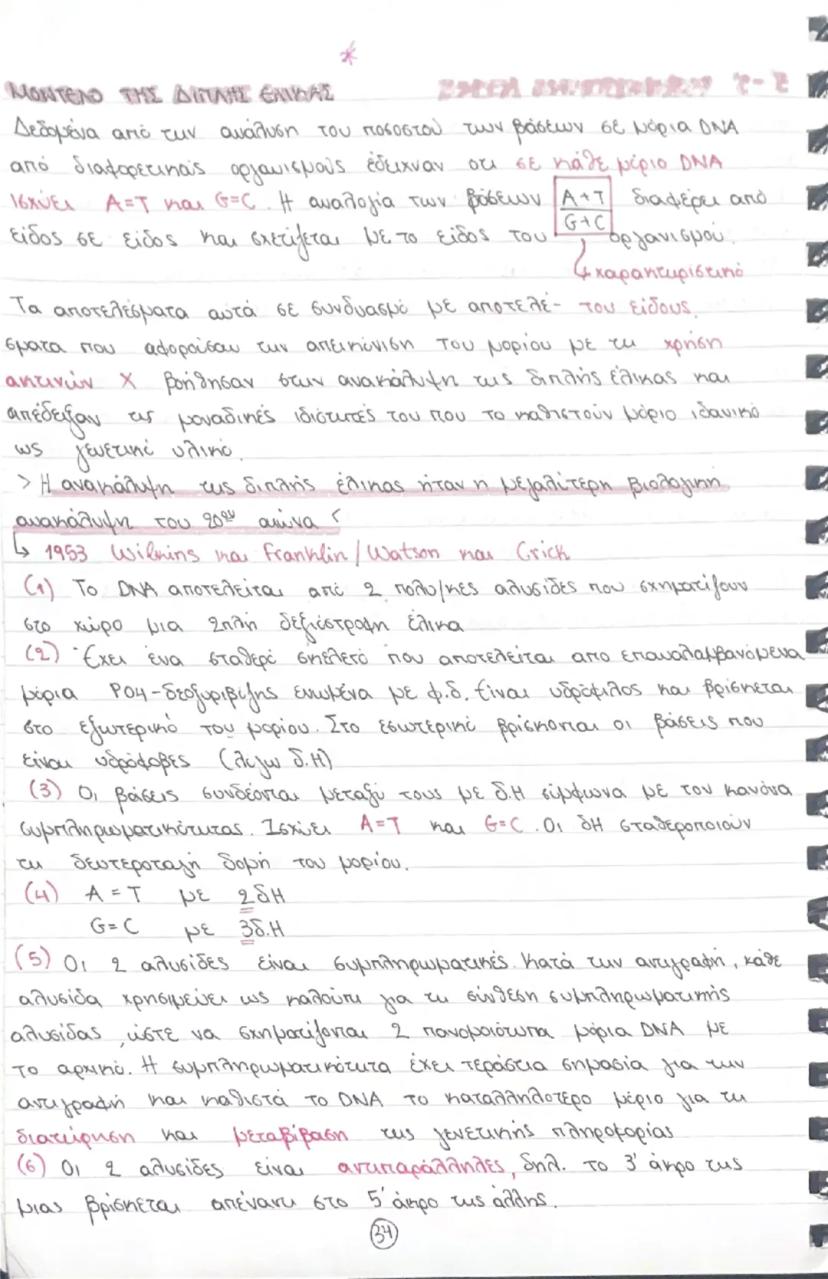 *
ΜΟΝΤΕΛΟ ΤΗΣ ΔΙΠΛΗΣ ΕΛΙΚΑΣ
Δεδομένα από την ανάλυση του ποσοστού των βάσεων σε μόρια DNA
από διαφορετικούς οργανισμούς έδειχναν οτι σε κάθε μόριο DNA
ισχύει A=T και G=C. Η αναλογία των βάσεων A+T/G+C διαφέρει από
είδος σε είδος και σχετίζεται με το είδος του οργανισμού.
↳ χαρακτηριστικό
Τα αποτελέσματα αυτά σε συνδυασμό με αποτελέ- του είδους.
σματα που αφορούσαν την απεικόνιση του μορίου με τη χρήση
ακτινών Χ βοήθησαν στην ανακάλυψη της διπλής έλικας και
απέδειξαν τις μοναδικές ιδιότητές του που το καθιστούν μόριο ιδανικό
ως γενετικό υλικό.
> Η ανακάλυψη της διπλής έλικας ήταν η μεγαλύτερη βιολογική
ανακάλυψη του 20ου αιώνα <
↳ 1953 Wilkins και Franklin/Watson και Crick
(1) Το DNA αποτελείται από 2 πολυ/κές αλυσίδες που σχηματίζουν
στο χώρο μια 2πλή δεξιόστροφη έλικα
(2) Έχει ένα σταθερό σκελετό που αποτελείται απο επαναλαμβανόμενα
μόρια PO4-δεοξυριβόζης ενωμένα με φ.δ. Είναι υδρόφιλος και βρίσκεται
στο εξωτερικό του μορίου. Στο εσωτερικό βρίσκονται οι βάσεις που
είναι υδρόφοβες (λόγω δ.Η)
(3) Οι βάσεις συνδέονται μεταξύ τους με δ.Η σύμφωνα με τον κανόνα
συμπληρωματικότητας. Ισχύει A=T και G=C. Οι δΗ σταθεροποιούν
τη δευτεροταγή δομή του μορίου.
(4) A=T με 2δΗ
G=C με 3δ.Η
(5) Οι 2 αλυσίδες είναι συμπληρωματικές. Κατά την αντιγραφή, κάθε
αλυσίδα χρησιμεύει ως καλούπι για τη σύνθεση συμπληρωματικής
αλυσίδας, ώστε να σχηματίζονται 2 πανομοιότυπα μόρια DNA με
το αρχικό. Η συμπληρωματικότητα έχει τεράστια σημασία για την
αντιγραφή και καθιστά το DNA το καταλληλοτερο μόριο για τη
διατήρηση και μεταβίβαση της γενετικής πληροφορίας
(6) Οι 2 αλυσίδες είναι αντιπαράλληλες, δηλ. το 3' άκρο της
μιας βρίσκεται απέναντι στο 5' άκρο της άλλης.
34